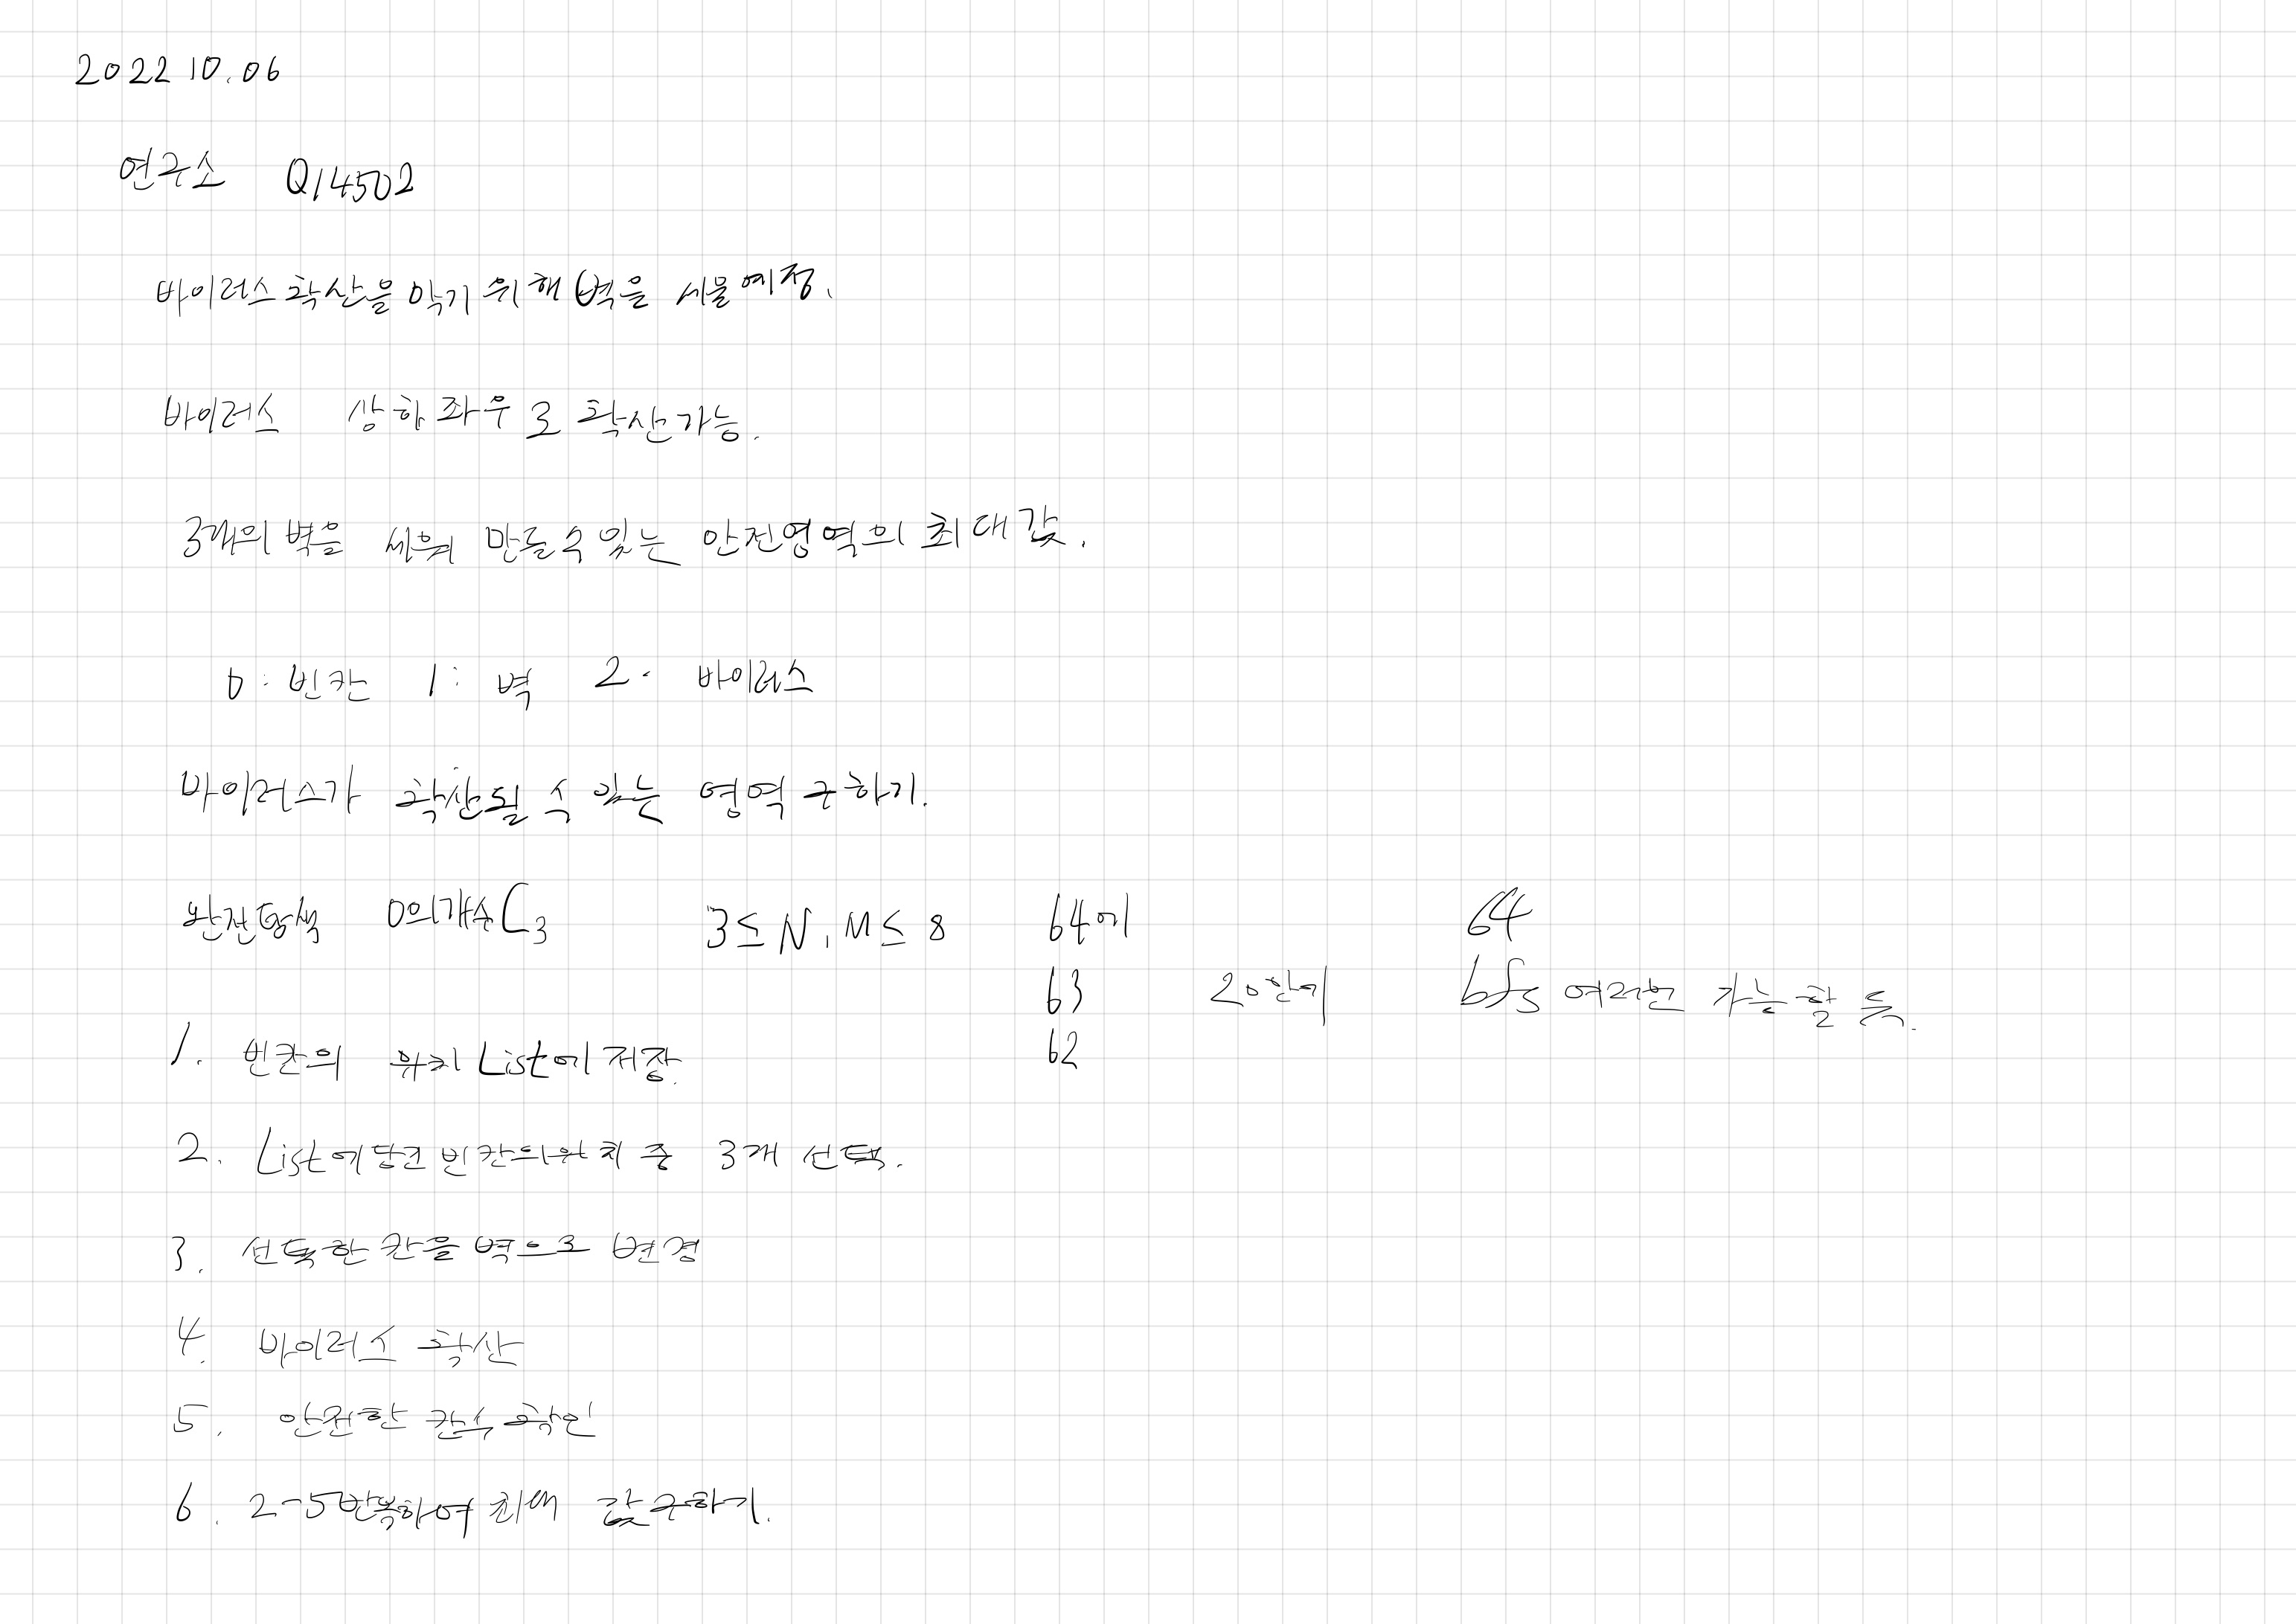 2022 10.06
연구소 Q14502
바이러스 확산을 막기 위해 벽을 세울 예정.
바이러스 상하좌우로 확산가능.
3개의 벽을 세워 만들 수 있는 안전영역의 최대값.
0: 빈칸 1: 벽 2. 바이러스
바이러스가 확산될 수 있는 영역 구하기.
완전탐색 0의개수C3 3≤N,M≤8 64에 64
63 20만에 bfs 여러번 가능할 듯.
62
1. 빈칸의 위치 List에 저장.
2. List에 담긴 빈칸의 위치 중 3개 선택.
3. 선택한 칸을 벽으로 변경
4. 바이러스 확산
5. 안전한 칸수 확인
6. 2-5반복하여 최대 값 구하기.